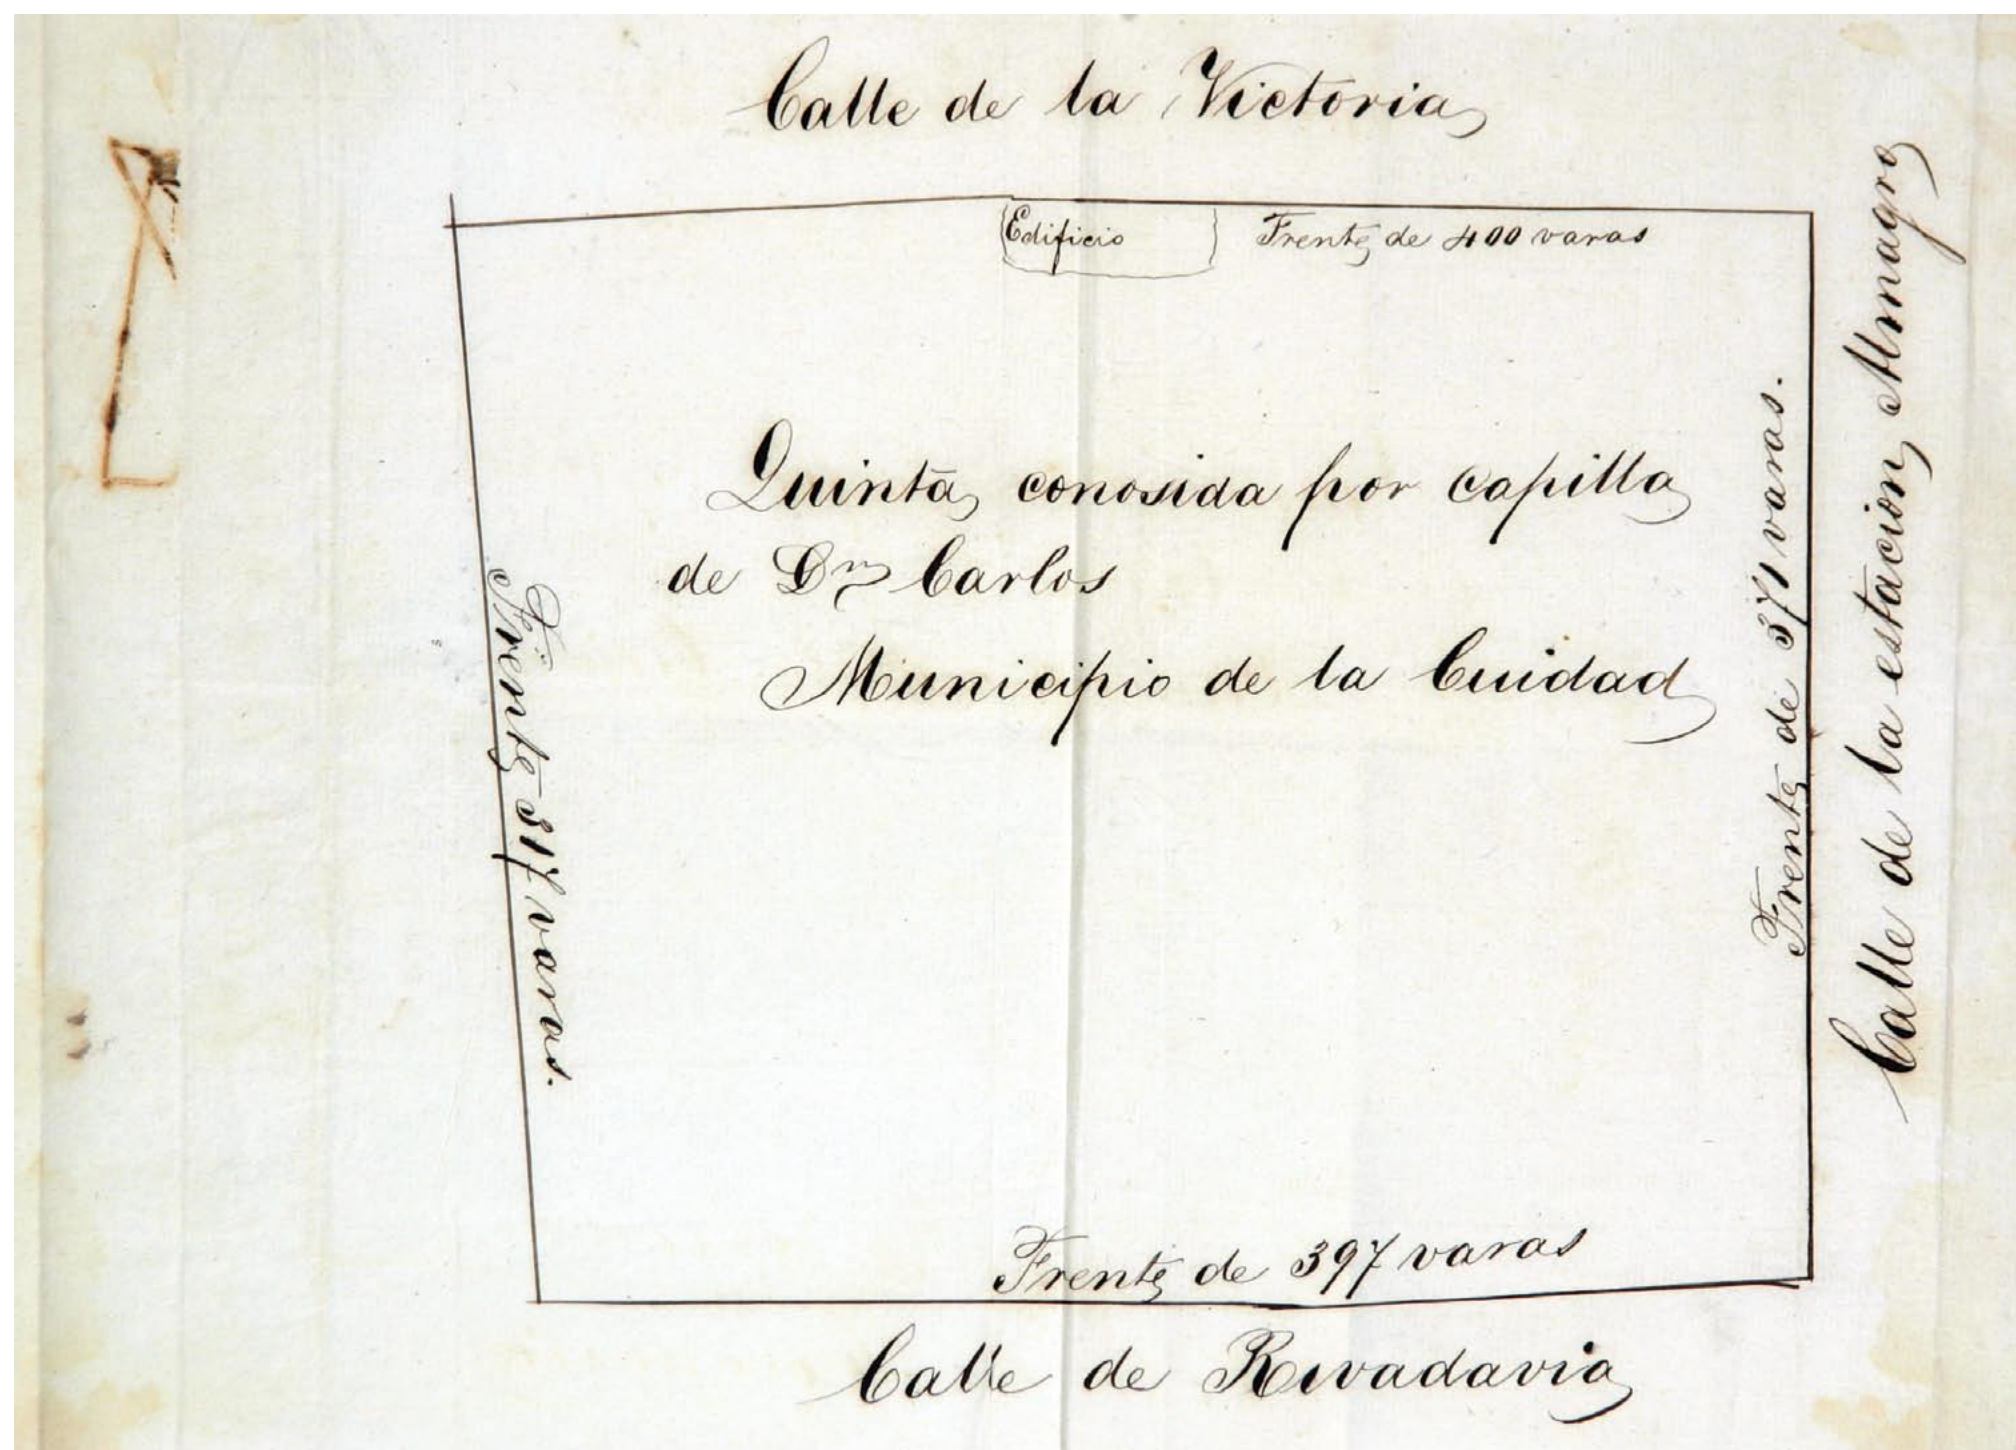 Calle de la Victoria
Edificio
Frente de 400 varas
Quinta conosida por capilla
de Dn Carlos
Municipio de la Cuidad
Frente 317 varas.
Frente de 371 varas.
Calle de la estacion Almagro
Frente de 397 varas
Calle de Rivadavia